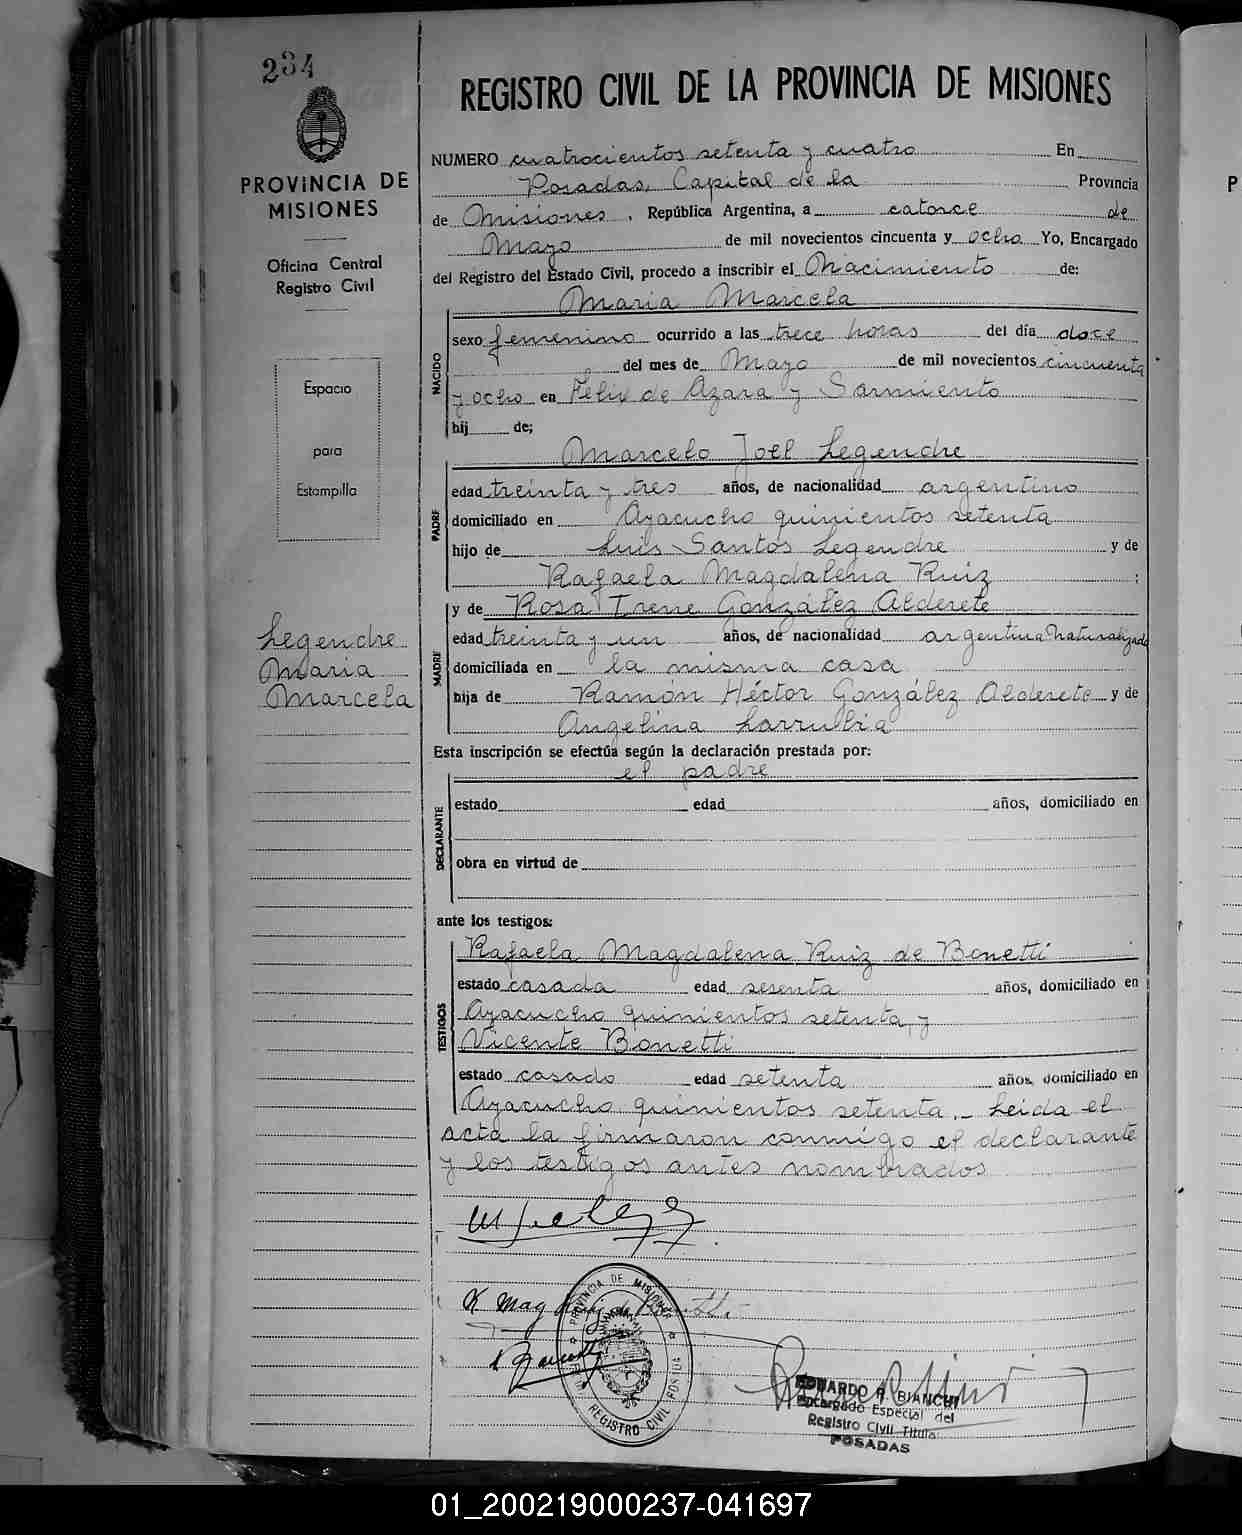 234
REGISTRO CIVIL DE LA PROVINCIA DE MISIONES
PROVINCIA DE
MISIONES
Oficina Central
Registro Civil
Espacio
para
Estampilla
Legendre
Maria
Marcela
NUMERO cuatrocientos setenta y cuatro En
Posadas, Capital de la Provincia
de Misiones, República Argentina, a catorce de
Mayo de mil novecientos cincuenta y ocho Yo, Encargado
del Registro del Estado Civil, procedo a inscribir el Nacimiento de:
Maria Marcela
NACIDO
sexo femenino ocurrido a las trece horas del día doce
del mes de Mayo de mil novecientos cincuenta
y ocho en Félix de Azara y Sarmiento
hij de;
Marcelo Joel Legendre
PADRE
edad treinta y tres años, de nacionalidad argentino
domiciliado en Ayacucho quinientos setenta
hijo de Luis Santos Legendre y de
Rafaela Magdalena Ruiz ;
y de Rosa Irene González Alderete
MADRE
edad treinta y un años, de nacionalidad argentina naturalizada
domiciliada en la misma casa
hija de Ramón Héctor González Alderete y de
Angelina Larrubia
Esta inscripción se efectúa según la declaración prestada por:
el padre
DECLARANTE
estado edad años, domiciliado en
obra en virtud de
ante los testigos:
Rafaela Magdalena Ruiz de Bonetti
TESTIGOS
estado casada edad sesenta años, domiciliado en
Ayacucho quinientos setenta, y
Vicente Bonetti
estado casado edad setenta años, domiciliado en
Ayacucho quinientos setenta.- Leida el
acta la firmaron conmigo el declarante
y los testigos antes nombrados
PROVINCIA DE MISIONES
REGISTRO CIVIL
EDUARDO R. BIANCHI
Encargado Especial del
Registro Civil Titular
POSADAS
P
01_200219000237-041697